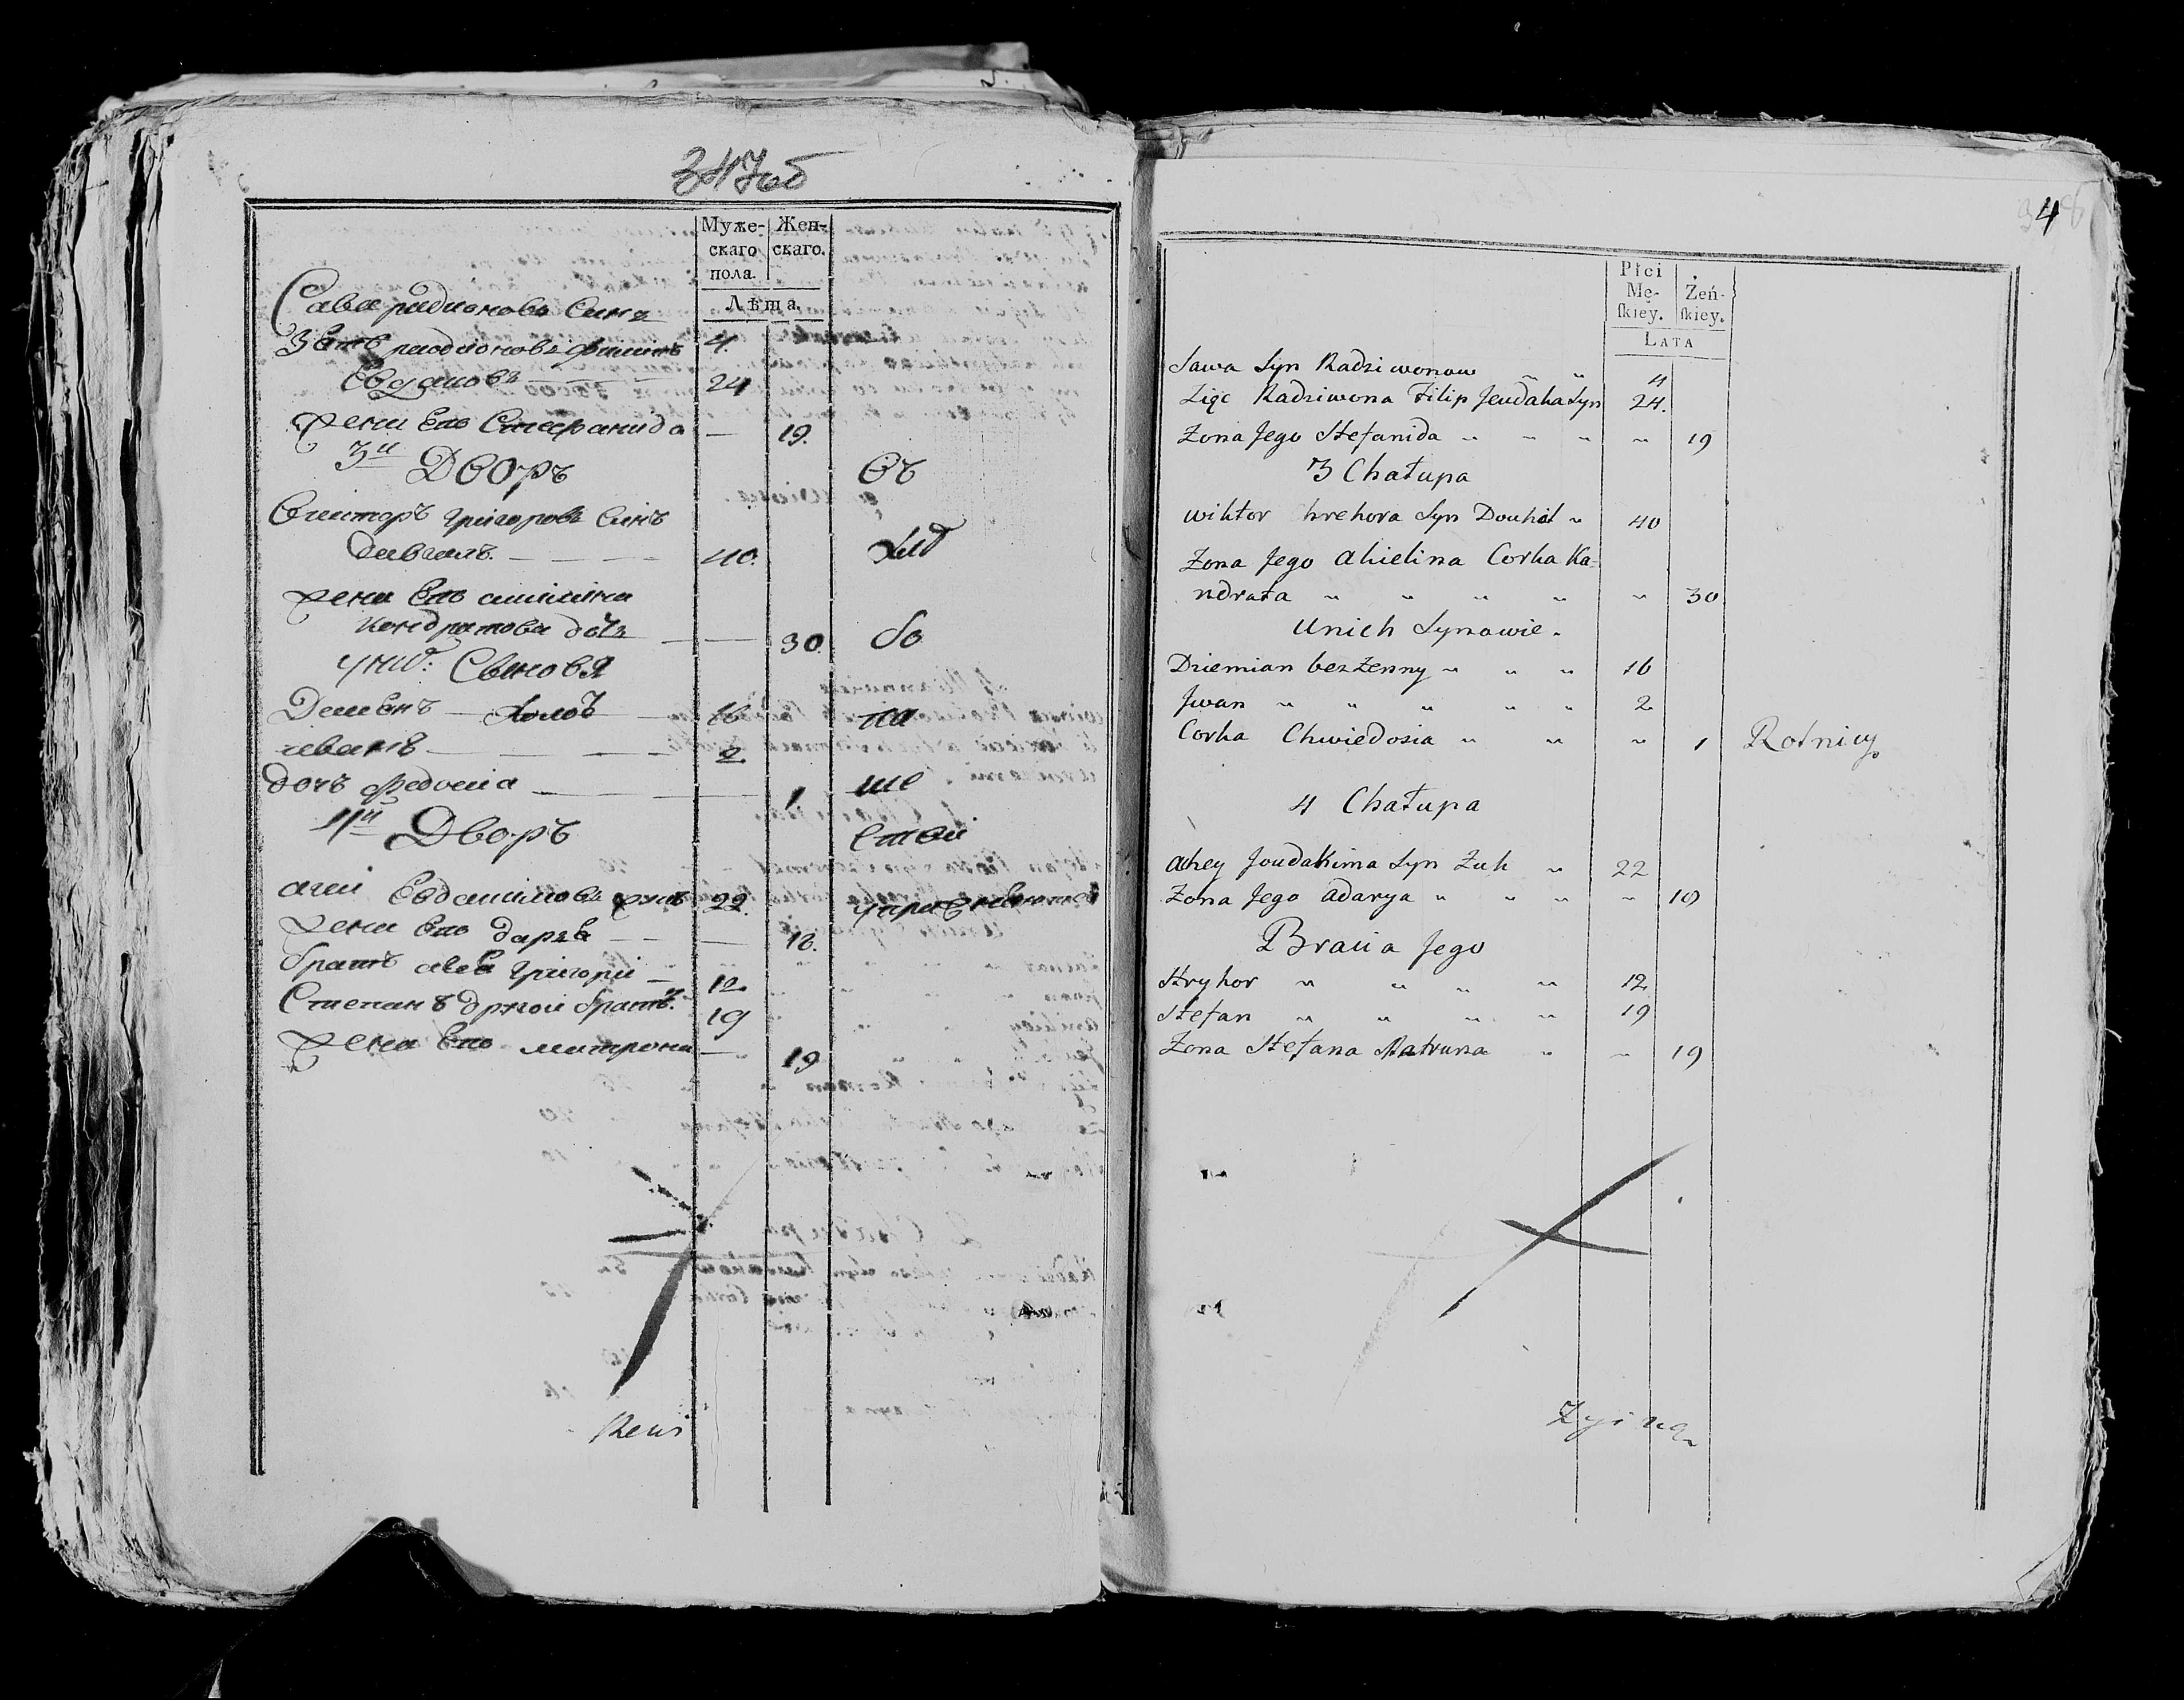 347об
Муже-
скаго
пола.
Жен-
скаго.
Лѣта.
Сава радионовъ синъ
4.
Зять радионовъ филипъ
Евдаковъ 24
жена Ево Стефанида — 19.
3й Дворъ
въ
Виктор Григоровъ Синъ
Давгалъ. 40.
хлѣ
жена Ево акилина
кондратова дочь — 30.
бо
у них: Сыновя
Демянъ — холос 16
па
иванъ 2
дочь Федосiа 1.
ше
4й Дворъ
ствѣ
агей Евдакимовъ жукъ 22.
упражняются
жена Ево даря — 18.
братъ Ево Григорiй 12
Степанъ другой братъ. 19
жена Ево матрона — 19
Rewi
4
Płci
Mę-
ſkiey.
Żeń-
ſkiey.
LATA
Sawa Syn Radziwonow 4
Zięc Radziwona Filip Jeudaka Syn 24.
Zona Jego Stefanida 19
3 Chałupa
Wiktor hrehora Syn Douhal 40
Zona Jego Akielina Corka Ka-
ndrata 30
Unich Synowie
Dziemian bezżenny 16
Jwan 2
Corka Chwiedosia 1
Rolnicy
4 Chałupa
Ahey Joudakima Syn Zuk 22
Zona Jego Adarya 18
Bracia Jego
Hryhor 12
Stefan 19
Zona Stefana Matruna 19
Zyina